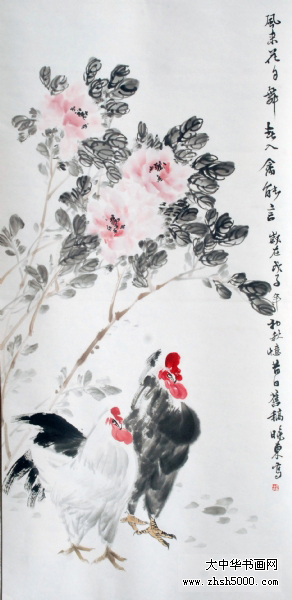 風来花自舞春入禽能言歲在戊子年初秋憶昔日舊稿曉東寫
大中华书画网
www.zhsh5000.com